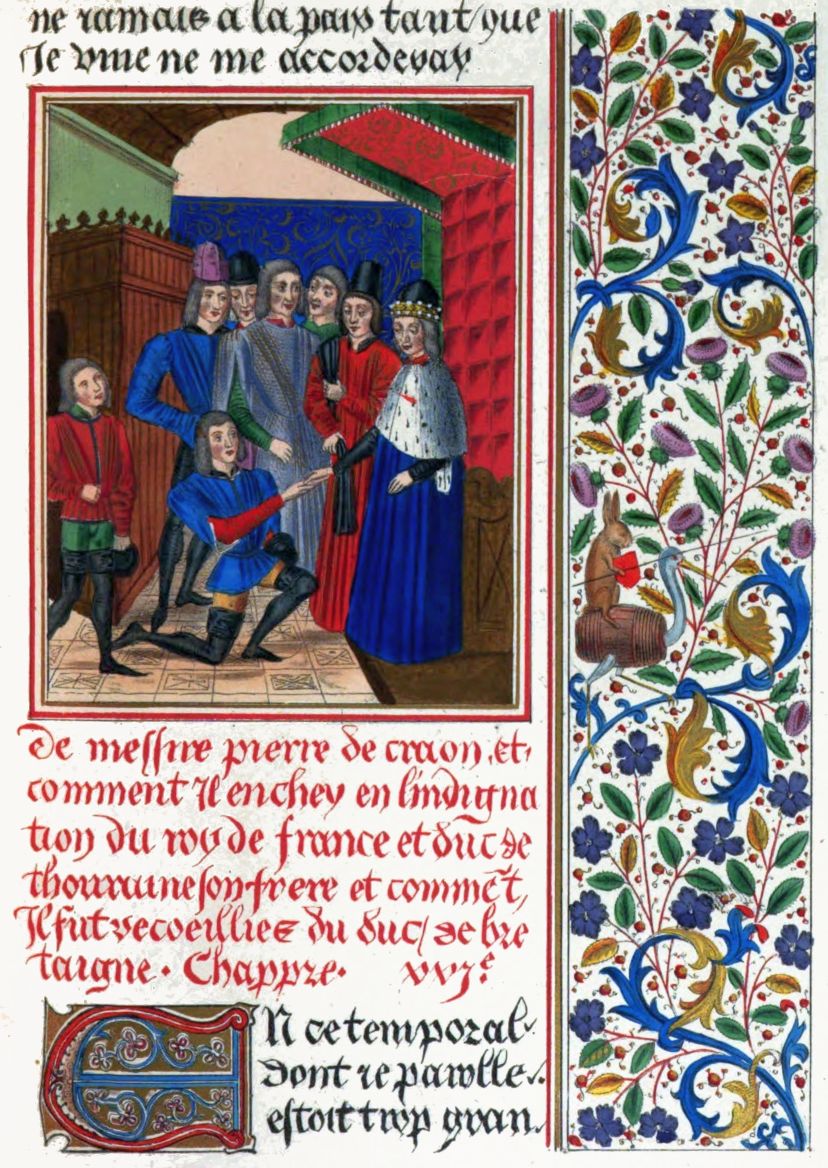 ne iamais a la paix tant que
Je vive ne me accorderay
De messire pierre de craon, et
comment Il enchey en lindigna
tion du roy de france et duc de
thourraine son frere et commēt,
Il fut recoeillies du duc de bre
taigne. Chappre. xvjᵉ
En ce temporal
dont ie parolle
estoit trop gran